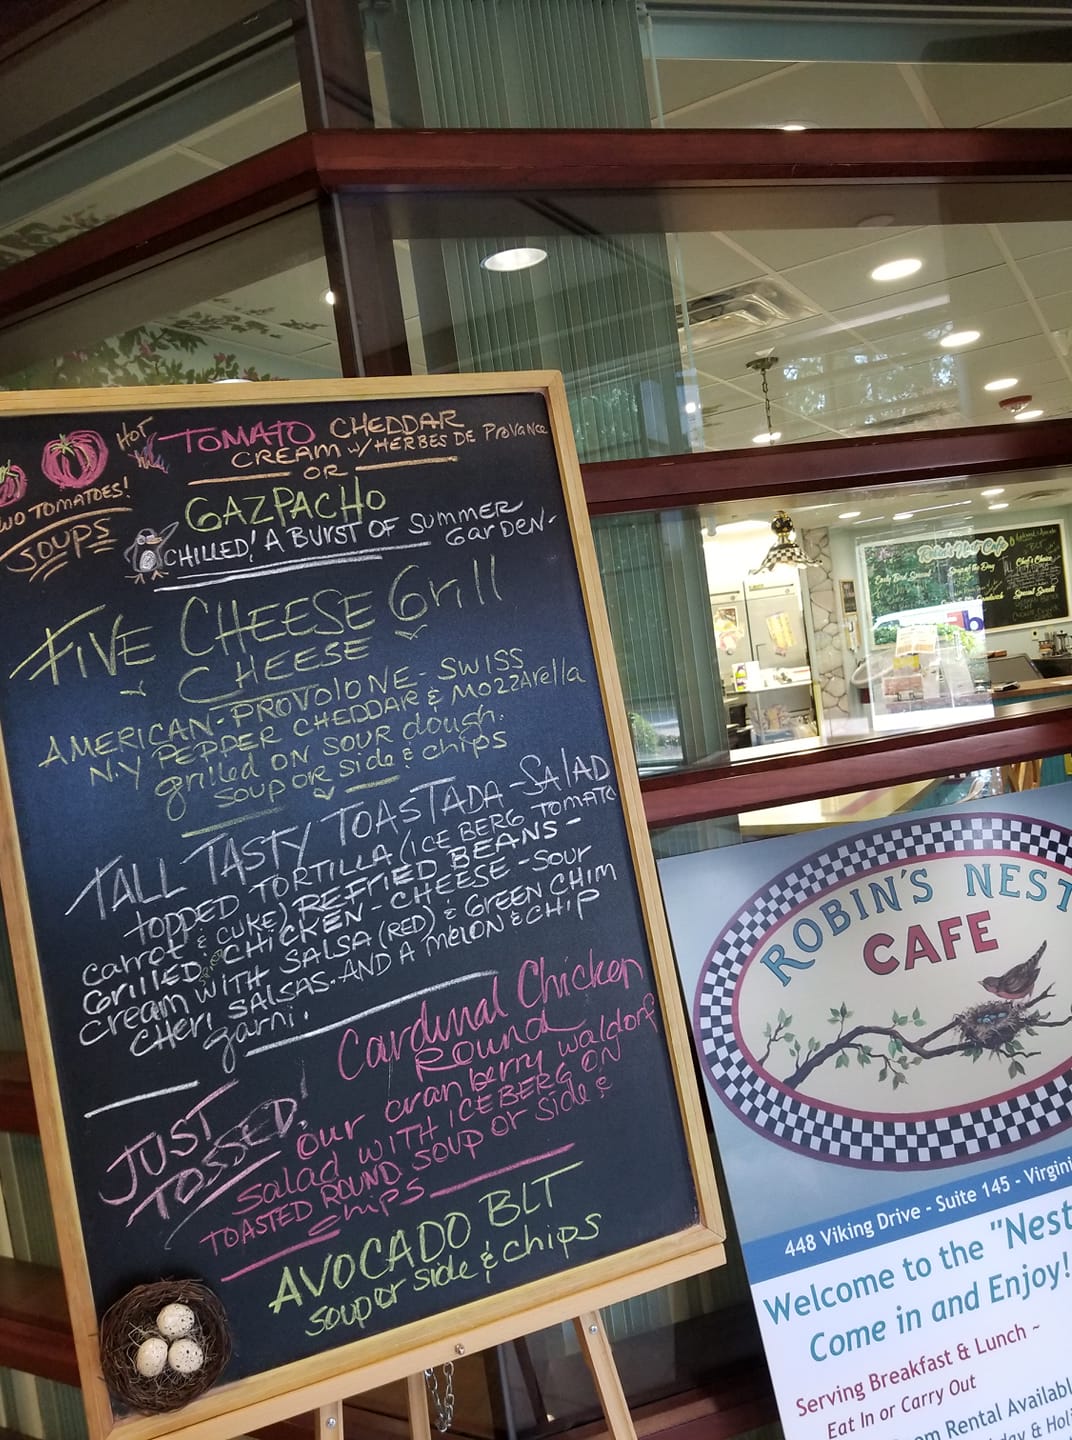 HOT
TOMATO CHEDDAR
CREAM W/ HERBES DE PROVANCE
OR
WO TOMATOES!
SOUPS
GAZPACHO
CHILLED! A BURST OF SUMMER
GARDEN-
FIVE CHEESE Grill
CHEESE
AMERICAN-PROVOLONE-SWISS
N.Y PEPPER CHEDDAR & MOZZARELLA
grilled ON SOUR dough.
SOUP OR side & chips
TALL TASTY TOASTADA-SALAD
TOPPED TORTILLA (ICEBERG TOMATO
carrot & CUKE) REFRIED BEANS-
GrillED CHICKEN-CHEESE-SOUR
Cream WITH SALSA (RED) & GREEN CHIM
CHERI SALSAS. AND A MELON & CHIP
garni.
JUST
TOSSED!
Cardinal Chicken
ROUND
our cranberry waldorf
salad WITH ICEBERG ON
TOASTED ROUND SOUP or side &
chips
AVOCADO BLT
soup or side & chips
Robin's Nest Cafe
Early Bird Special
Soup of the Day
Chef's Choice
Special Sweets
FedEx
ROBIN'S NEST
CAFE
448 Viking Drive - Suite 145 - Virgini
Welcome to the "Nest
Come in and Enjoy!
Serving Breakfast & Lunch ~
Eat In or Carry Out
om Rental Availabl
day & Holi